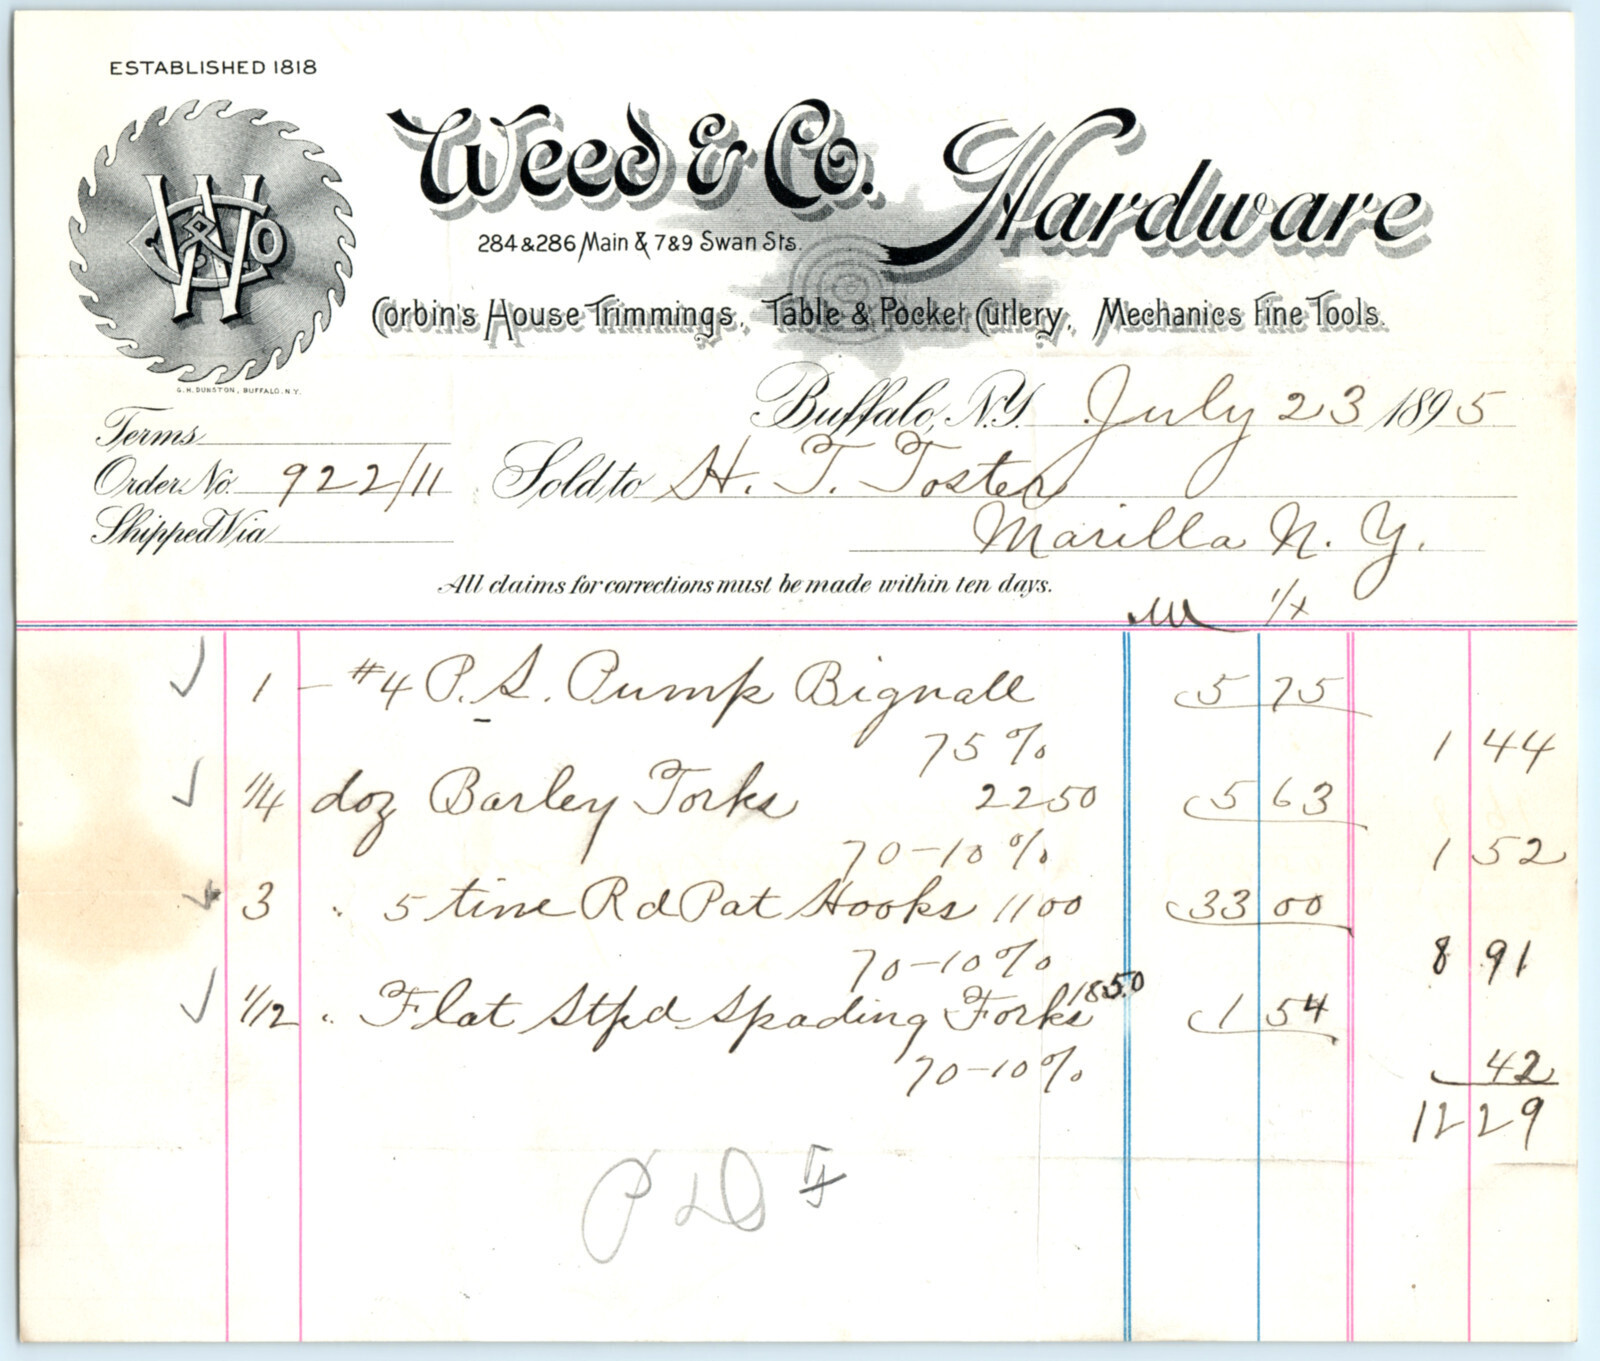 ESTABLISHED 1818
Weed & Co. Hardware
284 & 286 Main & 7 & 9 Swan Sts.
W & Co
Corbin's House Trimmings, Table & Pocket Cutlery, Mechanics Fine Tools.
G. H. DUNSTON, BUFFALO. N.Y.
Buffalo, N.Y. July 23 1895
Terms
Order No. 922/11 Sold to H. T. Foster
Shipped Via Marilla N. Y.
All claims for corrections must be made within ten days.
1 – #4 P. S. Pump Bignall 5 75
75 % 1 44
1/4 doz Barley Forks 22 50 5 63
70–10 % 1 52
3 " 5 tine Rd Pat Hooks 11 00 33 00
70–10 % 8 91
1/2 " Flat Stpd Spading Forks 18 50 1 54
70–10 % 42
12 29